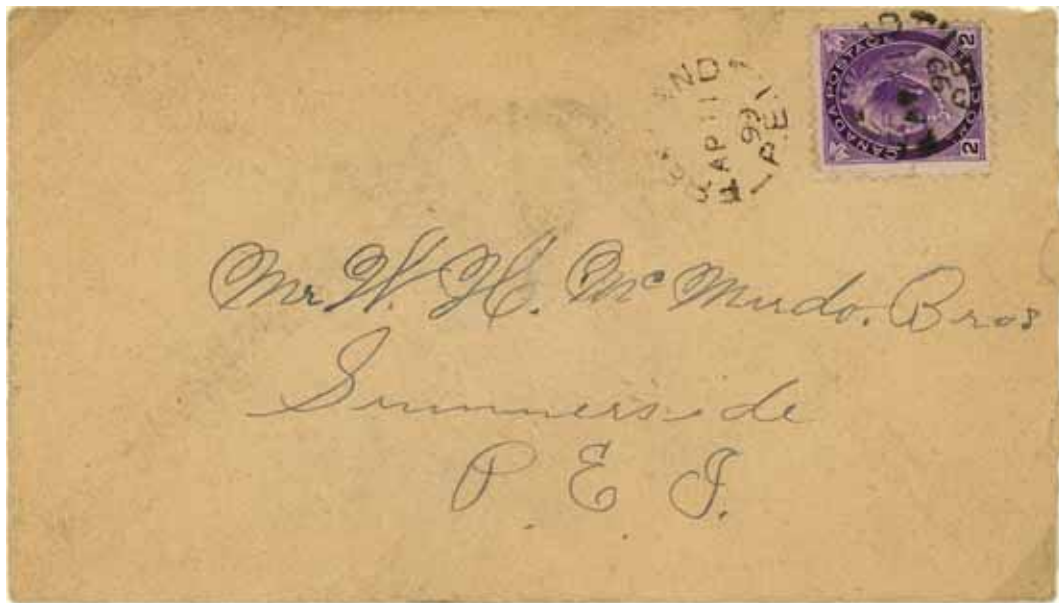 AP 11
99
P.E.I
CANADA POSTAGE
2 2
Mr W. H. Mc Murdo. Bros
Summerside
P. E. I.